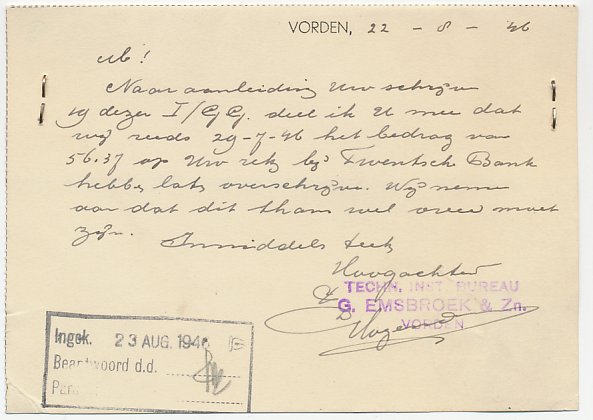 VORDEN, 22 - 8 - 46
M!
Naar aanleiding Uw schrijven
19 dezer I/GG. deel ik U mee dat
wij reeds 29-7-46 het bedrag van
56.37 op Uw rek bij Twentsche Bank
hebben laten overschrijven. Wij nemen
aan dat dit thans wel over moet
zijn. Inmiddels teek
Hoogachtend
TECHN. INST. BUREAU
G. EMSBROEK & Zn.
VORDEN
Ingek. 23 AUG. 1946
Beantwoord d.d.
Para